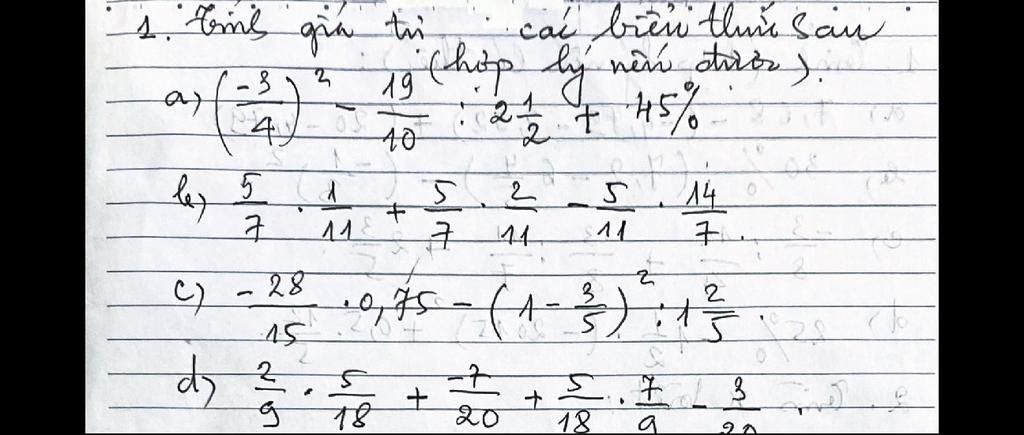 1. Tính giá trị các biểu thức sau
(hợp lý nếu được).
a) (-3/4)² - 19/10 : 2 1/2 + 45%
b) 5/7 . 1/11 + 5/7 . 2/11 - 5/11 . 14/7.
c) -28/15 . 0,75 - (1 - 3/5)² : 1 2/5.
d) 2/9 . 5/18 + -7/20 + 5/18 . 7/9 - 3/20.